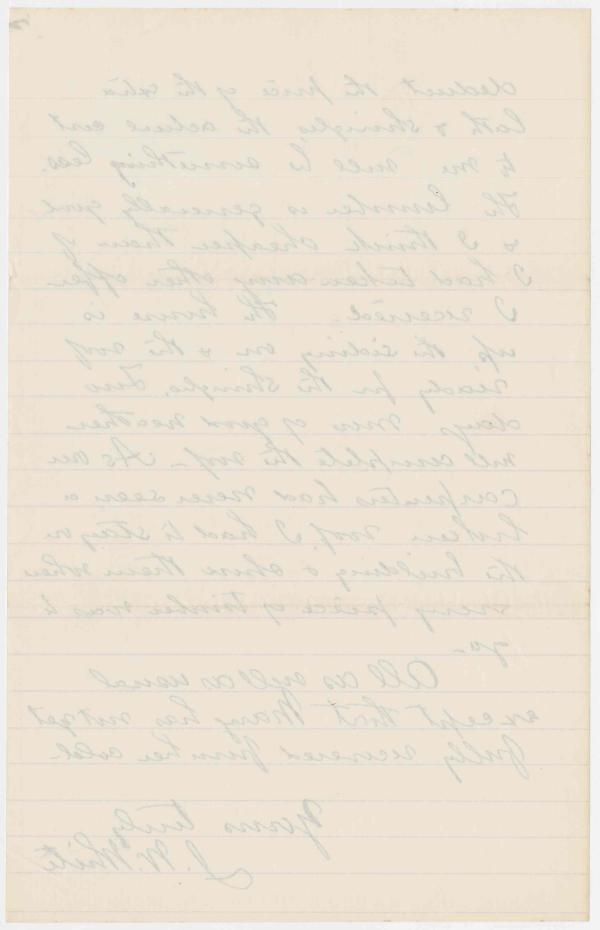 deduct the price of the extra
lath & shingles the actual cost
to me will be something less.
The lumber is generally good
& I think cheaper than if
I had taken any other offer
I received. The house is
up, the siding on & the roof
ready for the shingles. Two
days more of good weather
will complete the roof - As our
carpenters had never seen a
broken roof I had to stay on
the building & show them where
every piece of timber was to
go -
All as well as usual
except that Mary has not yet
fully recovered from her cold -
Yours truly
J. W. White